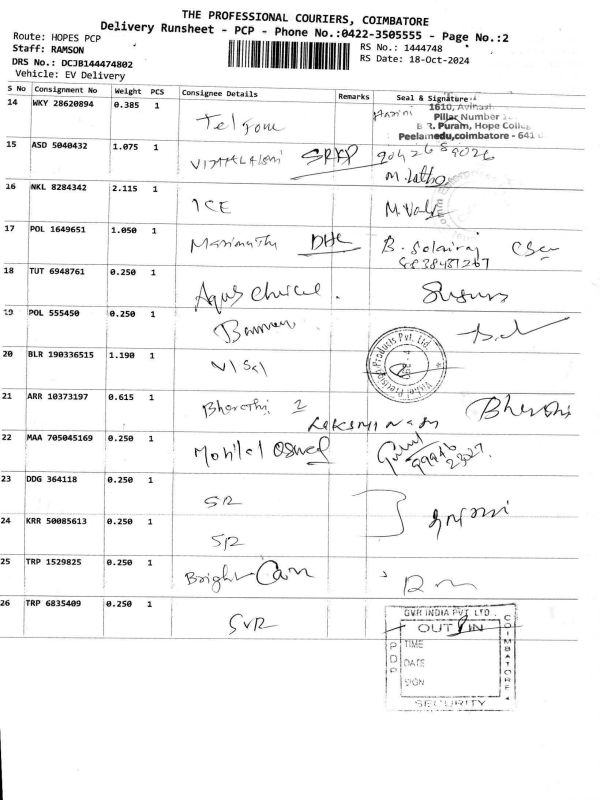 THE PROFESSIONAL COURIERS, COIMBATORE
Delivery Runsheet - PCP - Phone No.:0422-3505555 - Page No.:2
Route: HOPES PCP
Staff: RAMSON
DRS No.: DCJB144474802
Vehicle: EV Delivery
RS No.: 1444748
RS Date: 18-Oct-2024
S No Consignment No Weight PCS Consignee Details Remarks Seal & Signature
14 WKY 28620894 0.385 1
1610, Avinash
Pillar Number
B R. Puram, Hope Colleg
Peelamedu,coimbatore - 641
15 ASD 5040432 1.075 1 SRKP 9042689026
16 NKL 8284342 2.115 1 ICE
17 POL 1649651 1.050 1 DHL B. Solairaj
18 TUT 6948761 0.250 1
19 POL 555450 0.250 1
20 BLR 190336515 1.190 1
Products Pvt. Ltd.
21 ARR 10373197 0.615 1 Bharathi 2
22 MAA 705045169 0.250 1 Motilal Oswal
23 DDG 364118 0.250 1 SR
24 KRR 50085613 0.250 1 SR
25 TRP 1529825 0.250 1 Bright Cam
26 TRP 6835409 0.250 1 SVR
GVR INDIA PVT. LTD.
OUT / IN
PDP
TIME
DATE
SIGN
COIMBATORE
SECURITY